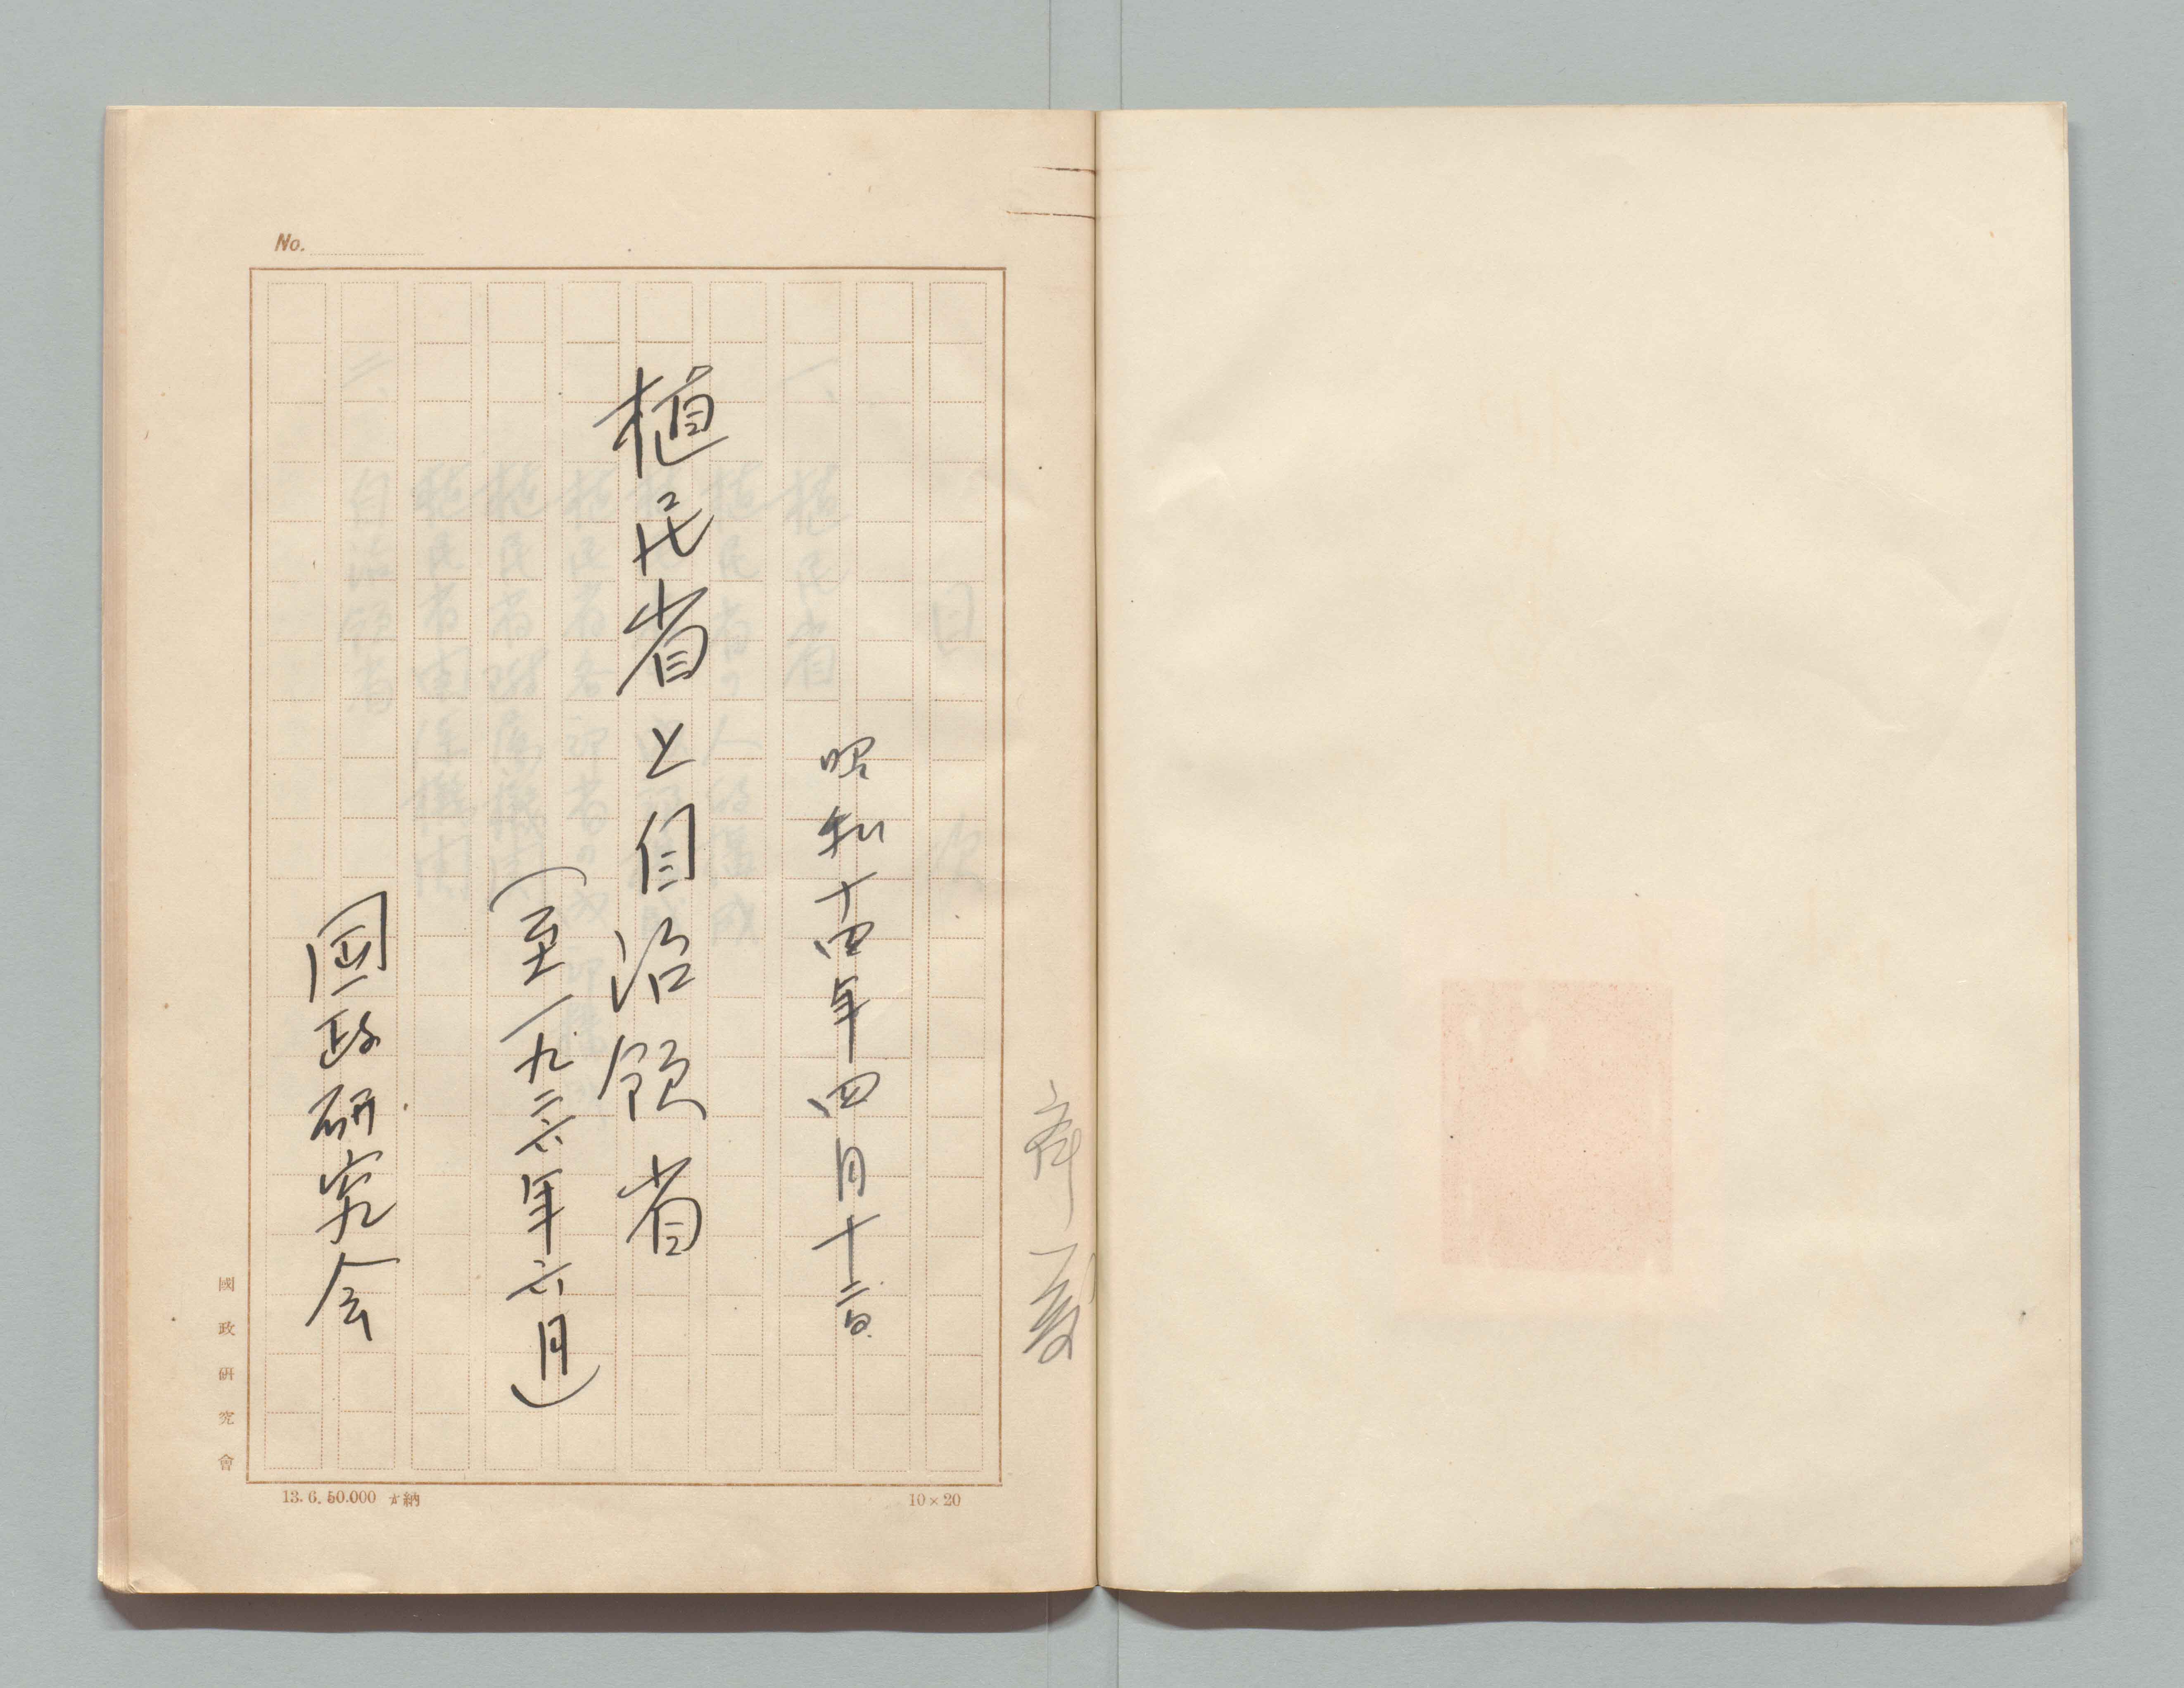 昭和十四年四月十二日
植民省と自治領省
（至一九三六年六月）
國政研究会
No.
國政研究會
13.6.50.000
10×20